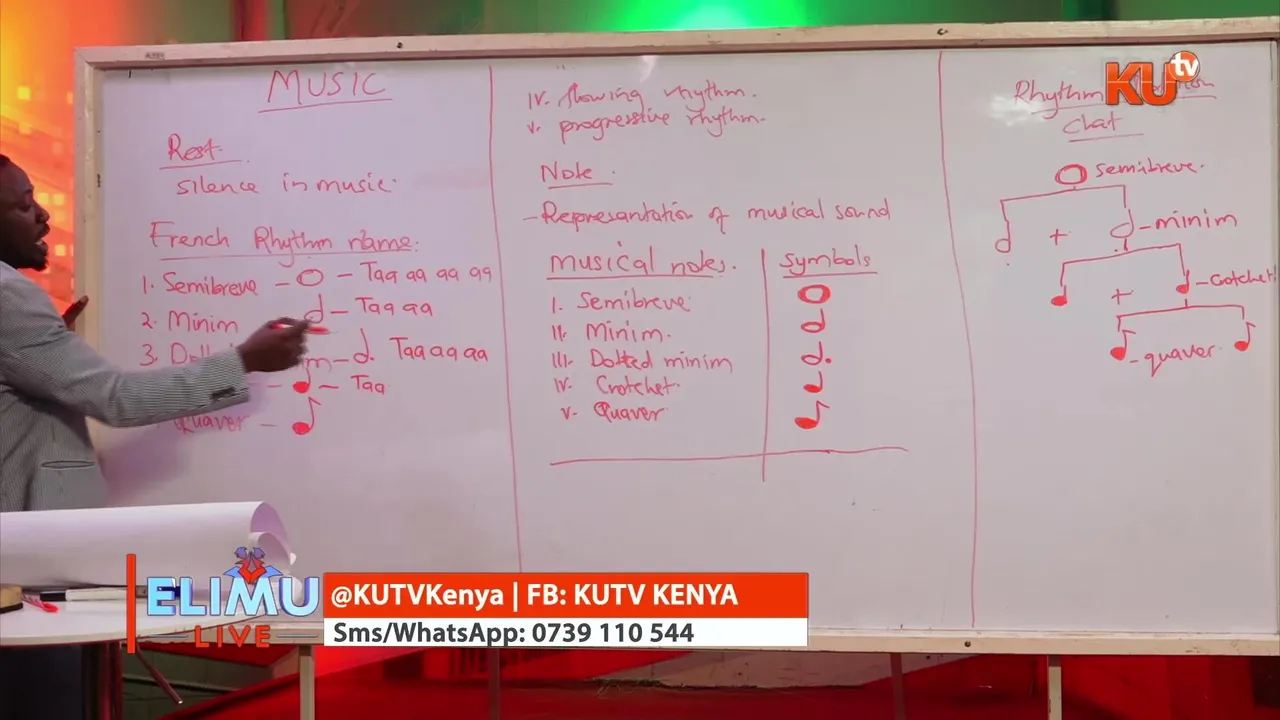 MUSIC
Rest
silence in music.
French Rhythm name:
1. Semibreve – – Taa aa aa aa
2. Minim – Taa aa
3. – Taa aa aa
– – Taa
Quaver –
IV. Flowing rhythm.
V. progressive rhythm.
Note
- Represantation of musical sound
Musical notes. Symbols
I. Semibreve
II. Minim.
III. Dotted minim
IV. Crotchet.
V. Quaver
Rhythm
Chat
Semibreve
+ - minim
+ - Crotchet
- quaver
KU tv
ELIMU
LIVE
@KUTVKenya | FB: KUTV KENYA
Sms/WhatsApp: 0739 110 544